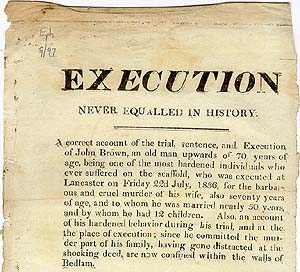 EXECUTION
NEVER EQUALLED IN HISTORY.
A correct account of the trial, sentence, and Execution
of John Brown, an old man upwards of 70 years of
age, being one of the most hardened individuals who
ever suffered on the scaffold, who was executed at
Lancaster on Friday 22d July, 1836, for the barba-
rous and cruel murder of his wife, also seventy years
of age, and to whom he was married nearly 50 years,
and by whom he had 12 children. Also, an account
of his hardened behavior during his trial, and at the
the place of execution; since he committed the mur-
der part of his family, having gone distracted at the
shocking deed, are now confined within the walls of
Bedlam.